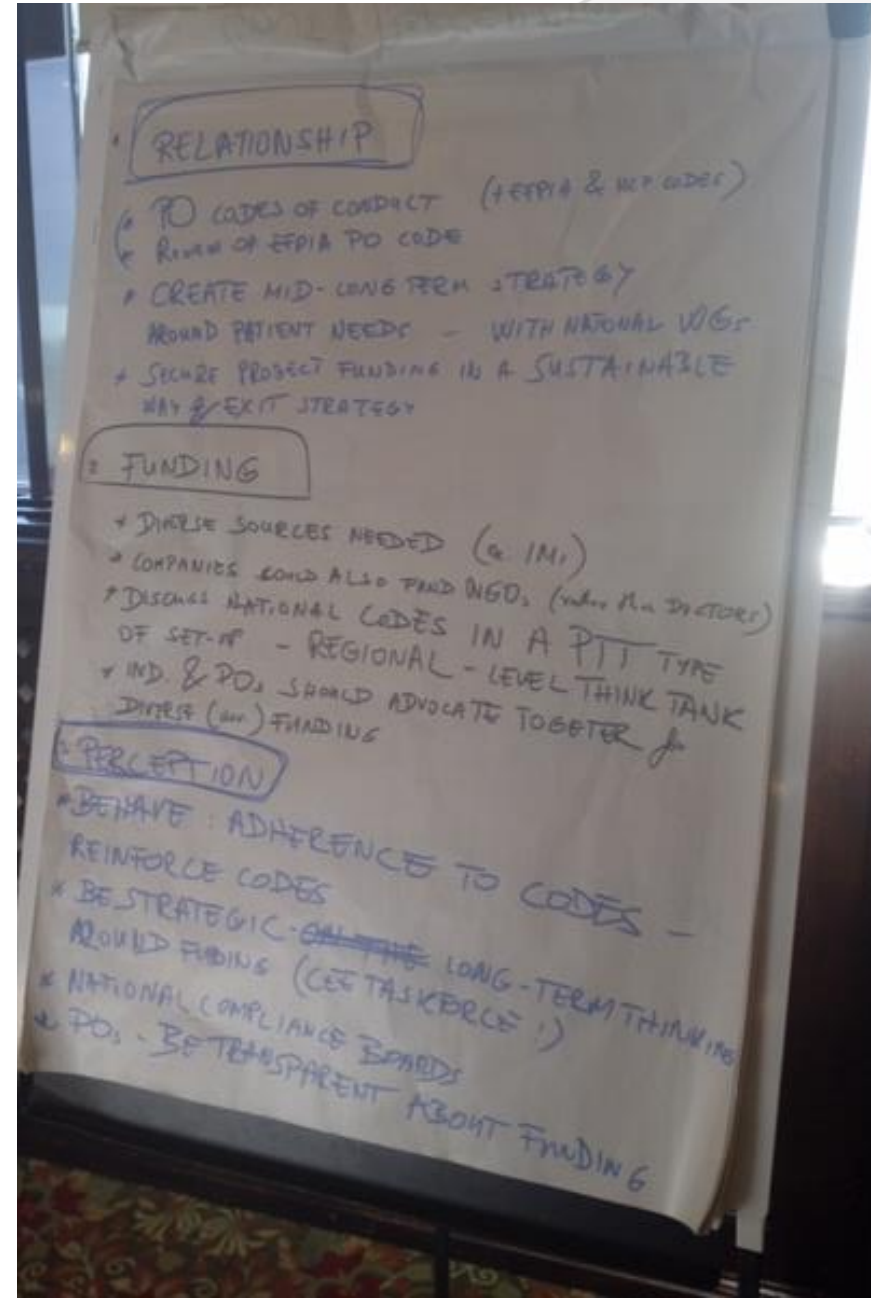 RELATIONSHIP
* PO CODES OF CONDUCT (+ EFPIA & HCP CODES)
* REVIEW OF EFPIA PO CODE
* CREATE MID-LONG TERM STRATEGY
AROUND PATIENT NEEDS - WITH NATIONAL WGs
* SECURE PROJECT FUNDING IN A SUSTAINABLE
WAY & EXIT STRATEGY
2 FUNDING
* DIVERSE SOURCES NEEDED
* COMPANIES COULD ALSO FUND NGOs (rather than DOCTORS)
* DISCUSS NATIONAL CODES IN A PTT TYPE
OF SET-UP - REGIONAL-LEVEL THINK TANK
* IND. & POs SHOULD ADVOCATE TOGETER for
DIVERSE FUNDING
3 PERCEPTION
* BEHAVE: ADHERENCE TO CODES -
REINFORCE CODES
* BE STRATEGIC - LONG-TERM THINKING
AROUND FUDING (CEE TASKFORCE!)
* NATIONAL COMPLIANCE BOARDS
* POs - BE TRANSPARENT ABOUT FUNDING